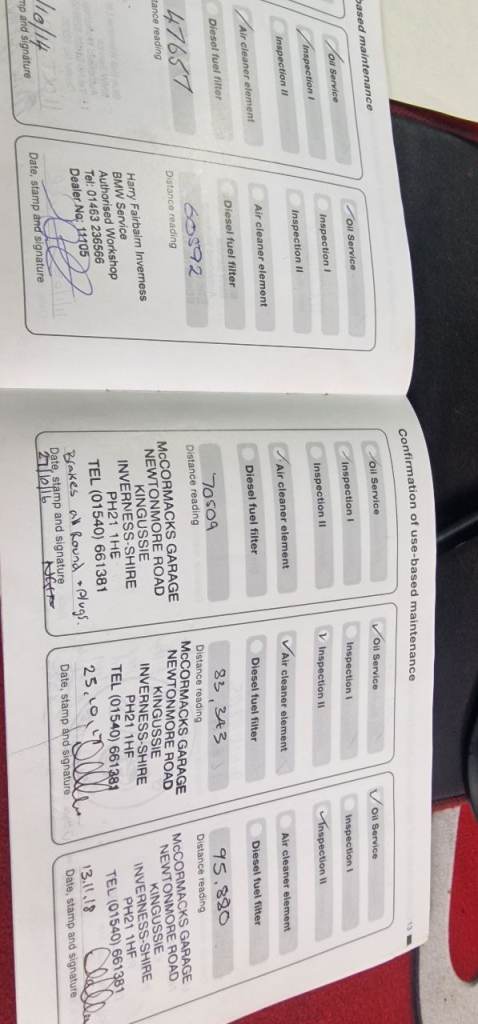 based maintenance
Oil Service
Inspection I
Inspection II
Air cleaner element
Diesel fuel filter
47657
tance reading
/10/14
mp and signature
Oil Service
Inspection I
Inspection II
Air cleaner element
Diesel fuel filter
60592
Distance reading
Harry Fairbairn Inverness
BMW Service
Authorised Workshop
Tel: 01463 236566
Dealer No: 11105
Date, stamp and signature
Confirmation of use-based maintenance
Oil Service
Inspection I
Inspection II
Air cleaner element
Diesel fuel filter
70509
Distance reading
McCORMACKS GARAGE
NEWTONMORE ROAD
KINGUSSIE
INVERNESS-SHIRE
PH21 1HE
TEL (01540) 661381
Brakes all Round + plugs.
Date, stamp and signature
Oil Service
Inspection I
Inspection II
Air cleaner element
Diesel fuel filter
83,343
Distance reading
McCORMACKS GARAGE
NEWTONMORE ROAD
KINGUSSIE
INVERNESS-SHIRE
PH21 1HF
TEL (01540) 661381
25.10.17
Date, stamp and signature
Oil Service
Inspection I
Inspection II
Air cleaner element
Diesel fuel filter
95,890
Distance reading
McCORMACKS GARAGE
NEWTONMORE ROAD
KINGUSSIE
INVERNESS-SHIRE
PH21 1HF
TEL (01540) 661381
13.11.18
Date, stamp and signature
13